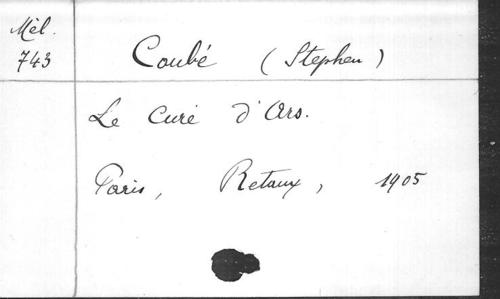 Mél.
743
Coubé (Stephen)
Le Curé d'Ars.
Paris, Retaux, 1905